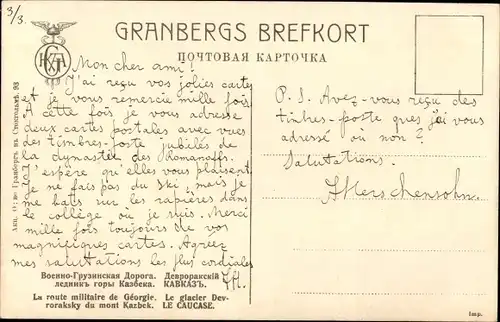 3/3.
GRANBERGS BREFKORT
ПОЧТОВАЯ КАРТОЧКА
Mon cher ami!
J'ai reçu vos jolies cartes
et je vous remercie mille fois
A cette fois je vous adresse
deux cartes postales avec vues
des timbres-poste jubilés de
la dynastie des Romanoffs.
J'espère qu'elles vous plaisent.
Je ne fais pas du ski, mais je
me bats sur les rapières dans
le collège où je suis. Merci
mille fois toujours de vos
magnifiques cartes. Agreez
mes salutations les plus cordiales
P. S. Avez-vous reçu des
timbres-poste que j'ai vous
adressé où non?
Salutations.
Военно-Грузинская Дорога. Девроракский
ледникъ горы Казбека. КАВКАЗЪ.
La route militaire de Géorgie. Le glacier Dev-
roraksky du mont Kazbek. LE CAUCASE.
Imp.